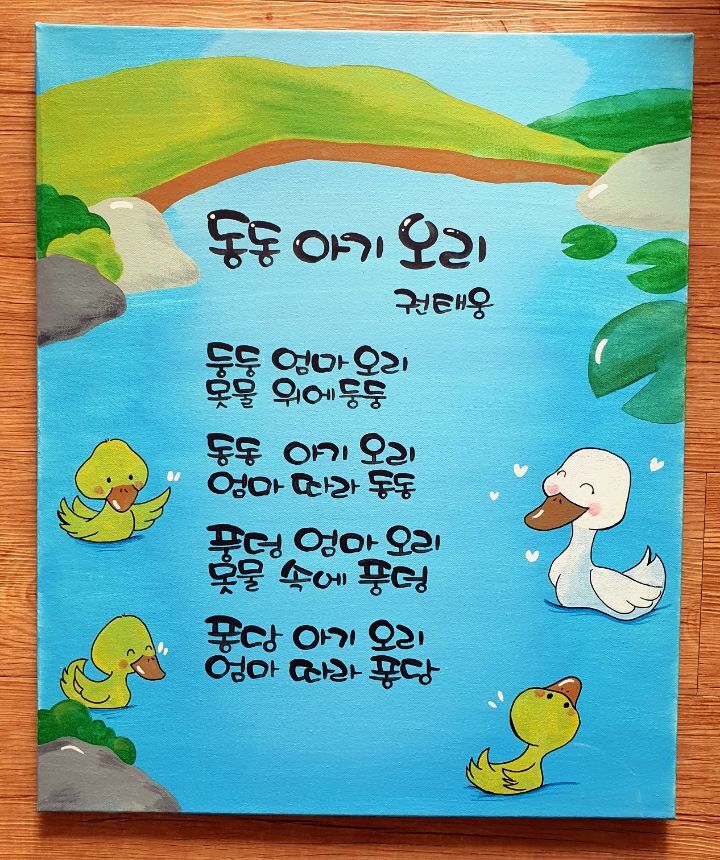 동동 아기 오리
권태웅
둥둥 엄마 오리
못물 위에 둥둥
동동 아기 오리
엄마 따라 동동
풍덩 엄마 오리
못물 속에 풍덩
퐁당 아기 오리
엄마 따라 퐁당